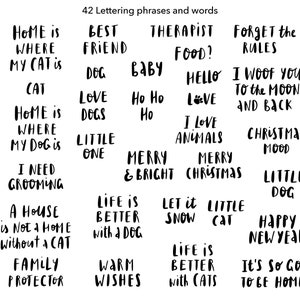 42 Lettering phrases and words
HOME is
WHERE
MY CAT is
CAT
HOME is
WHERE
MY DOG is
I NEED
GROOMING
A HOUSE
is NOT A HOME
without A CAT
FAMILY
PROTECTOR
BEST
FRIEND
DOG
LOVE
DOGS
LITTLE
ONE
BABY
Ho Ho
Ho
MERRY
& BRIGHT
LiFE iS
BETTER
with A DOG
WARM
WISHES
THERAPIST
FOOD?
HELLO
LVE
I LOVE
ANIMALS
MERRY
CHRISTMAS
LET iT
SNOW
LITTLE
CAT
LiFE iS
BETTER
with CATS
FORGET the
RULES
I WOOF YOU
TO the MOON
AND BACK
CHRISTMAS
MOOD
LITTLE
DOG
HAPPY
NEW YEAR
IT'S SO GO
TO BE HOME